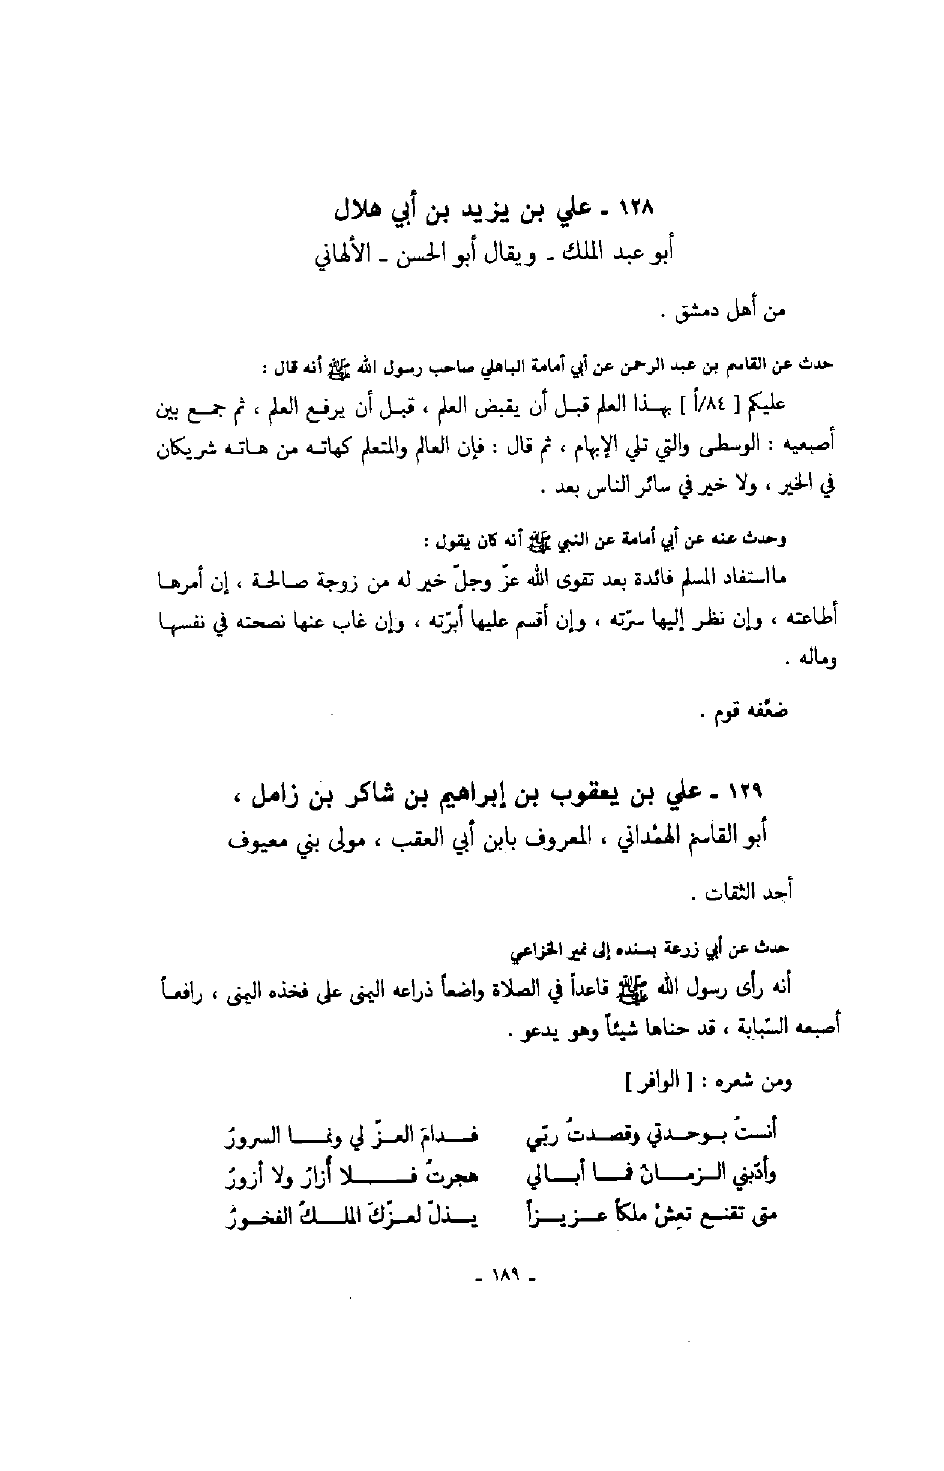 ١٢٨ ـ علي بن يزيد بن أبي هلال
أبو عبد الملك ـ ويقال أبو الحسن ـ الألهاني
من أهل دمشق .
حدث عن القاسم بن عبد الرحمن عن أبي أمامة الباهلي صاحب رسول الله ﷺ أنه قال :
عليكم [ ٨٤/أ ] بهذا العلم قبل أن يقبض العلم ، قبل أن يرفع العلم ، ثم جمع بين
أصبعيه : الوسطى والتي تلي الإبهام ، ثم قال : فإن العالم والمتعلم كهاته من هاته شريكان
في الخير ، ولا خير في سائر الناس بعد .
وحدث عنه عن أبي أمامة عن النبي ﷺ أنه كان يقول :
مااستفاد المسلم فائدة بعد تقوى الله عزّ وجلّ خير له من زوجة صالحة ، إن أمرها
أطاعته ، وإن نظر إليها سرّته ، وإن أقسم عليها أبرّته ، وإن غاب عنها نصحته في نفسها
وماله .
ضعّفه قوم .
١٢٩ ـ علي بن يعقوب بن إبراهيم بن شاكر بن زامل ،
أبو القاسم الهمْداني ، المعروف بابن أبي العقب ، مولى بني معيوف
أحد الثقات .
حدث عن أبي زرعة بسنده إلى نمير الخزاعي
أنه رأى رسول الله ﷺ قاعداً في الصلاة واضعاً ذراعه اليمنى على فخذه اليمنى ، رافعاً
أصبعه السّبابة ، قد حناها شيئاً وهو يدعو .
ومن شعره : [ الوافر ]
أنستُ بوحدتي وقصدتُ ربّي فدامَ العزّ لي ونما السرورُ
وأدّبني الزمانُ فما أبالي هجرتُ فلا أُزارُ ولا أزورُ
متى تقنع تعِشْ ملكاً عزيزاً يذلّ لعزّكَ الملكُ الفخورُ
ـ ١٨٩ ـ